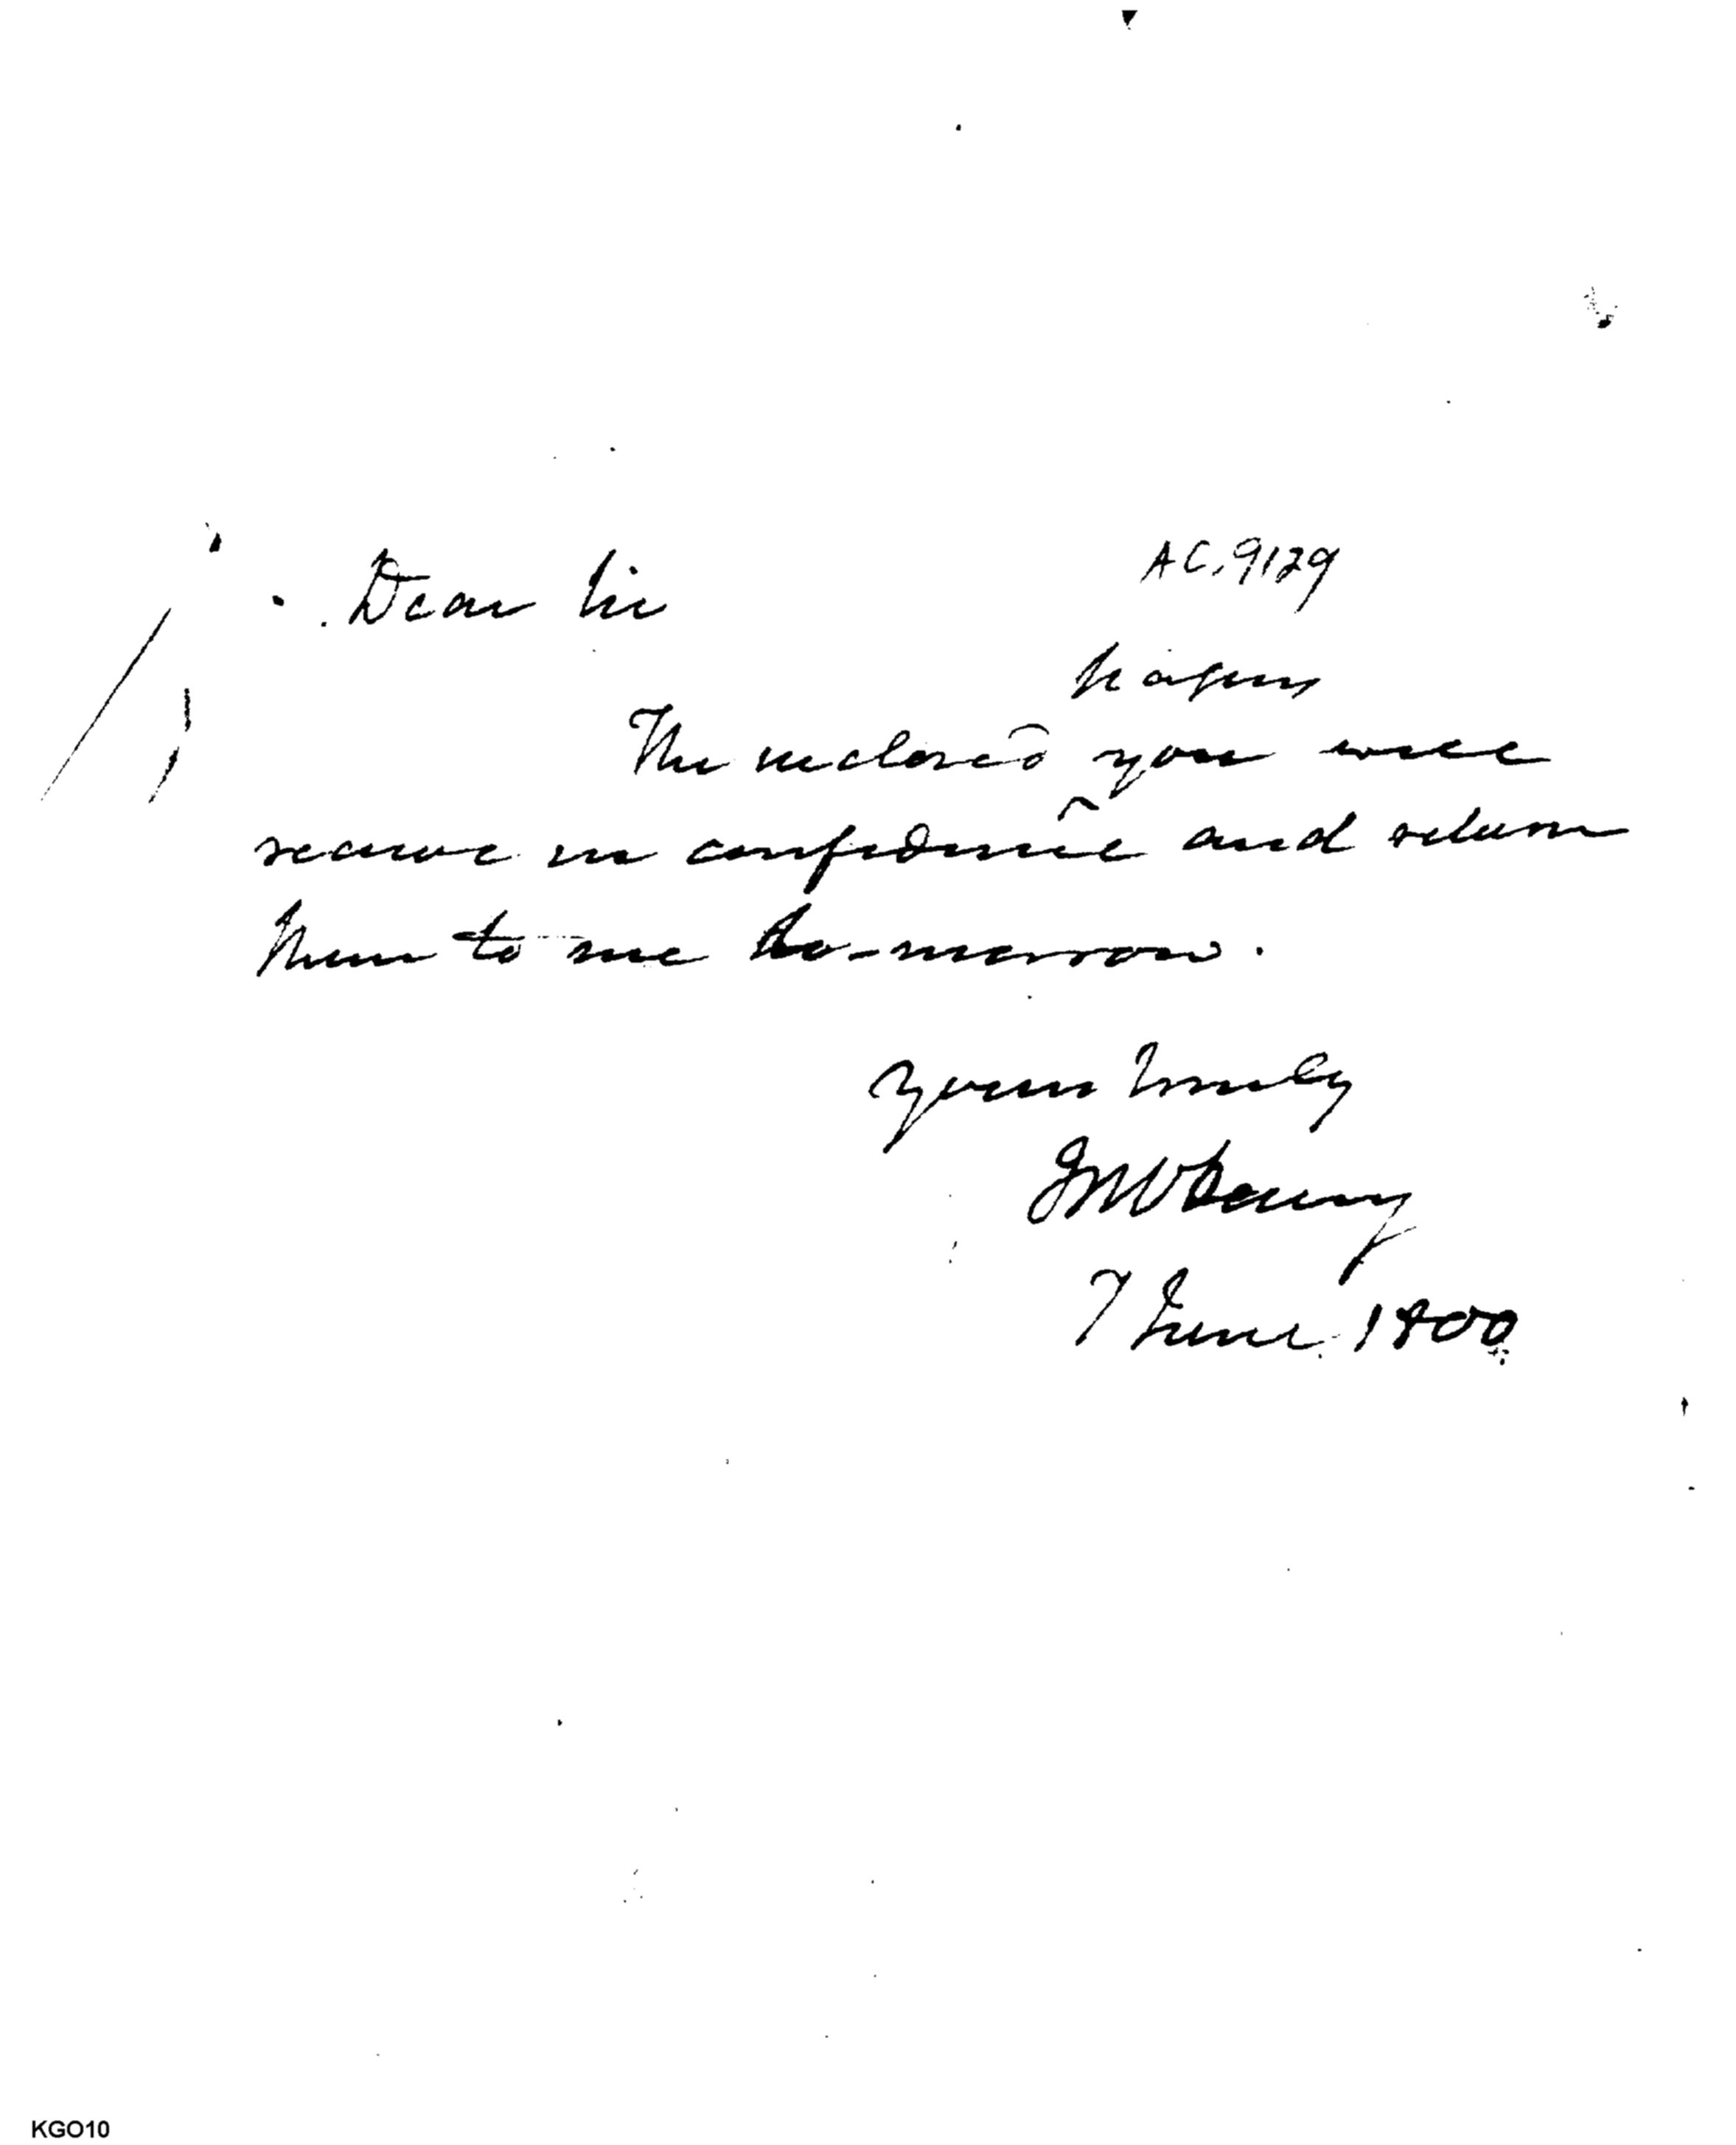 Dear Sir
AC. 9129
The inclosed you will
receive in confidence and return
them to me to-morrow.
Yours truly
7 June. 1800
KGO10